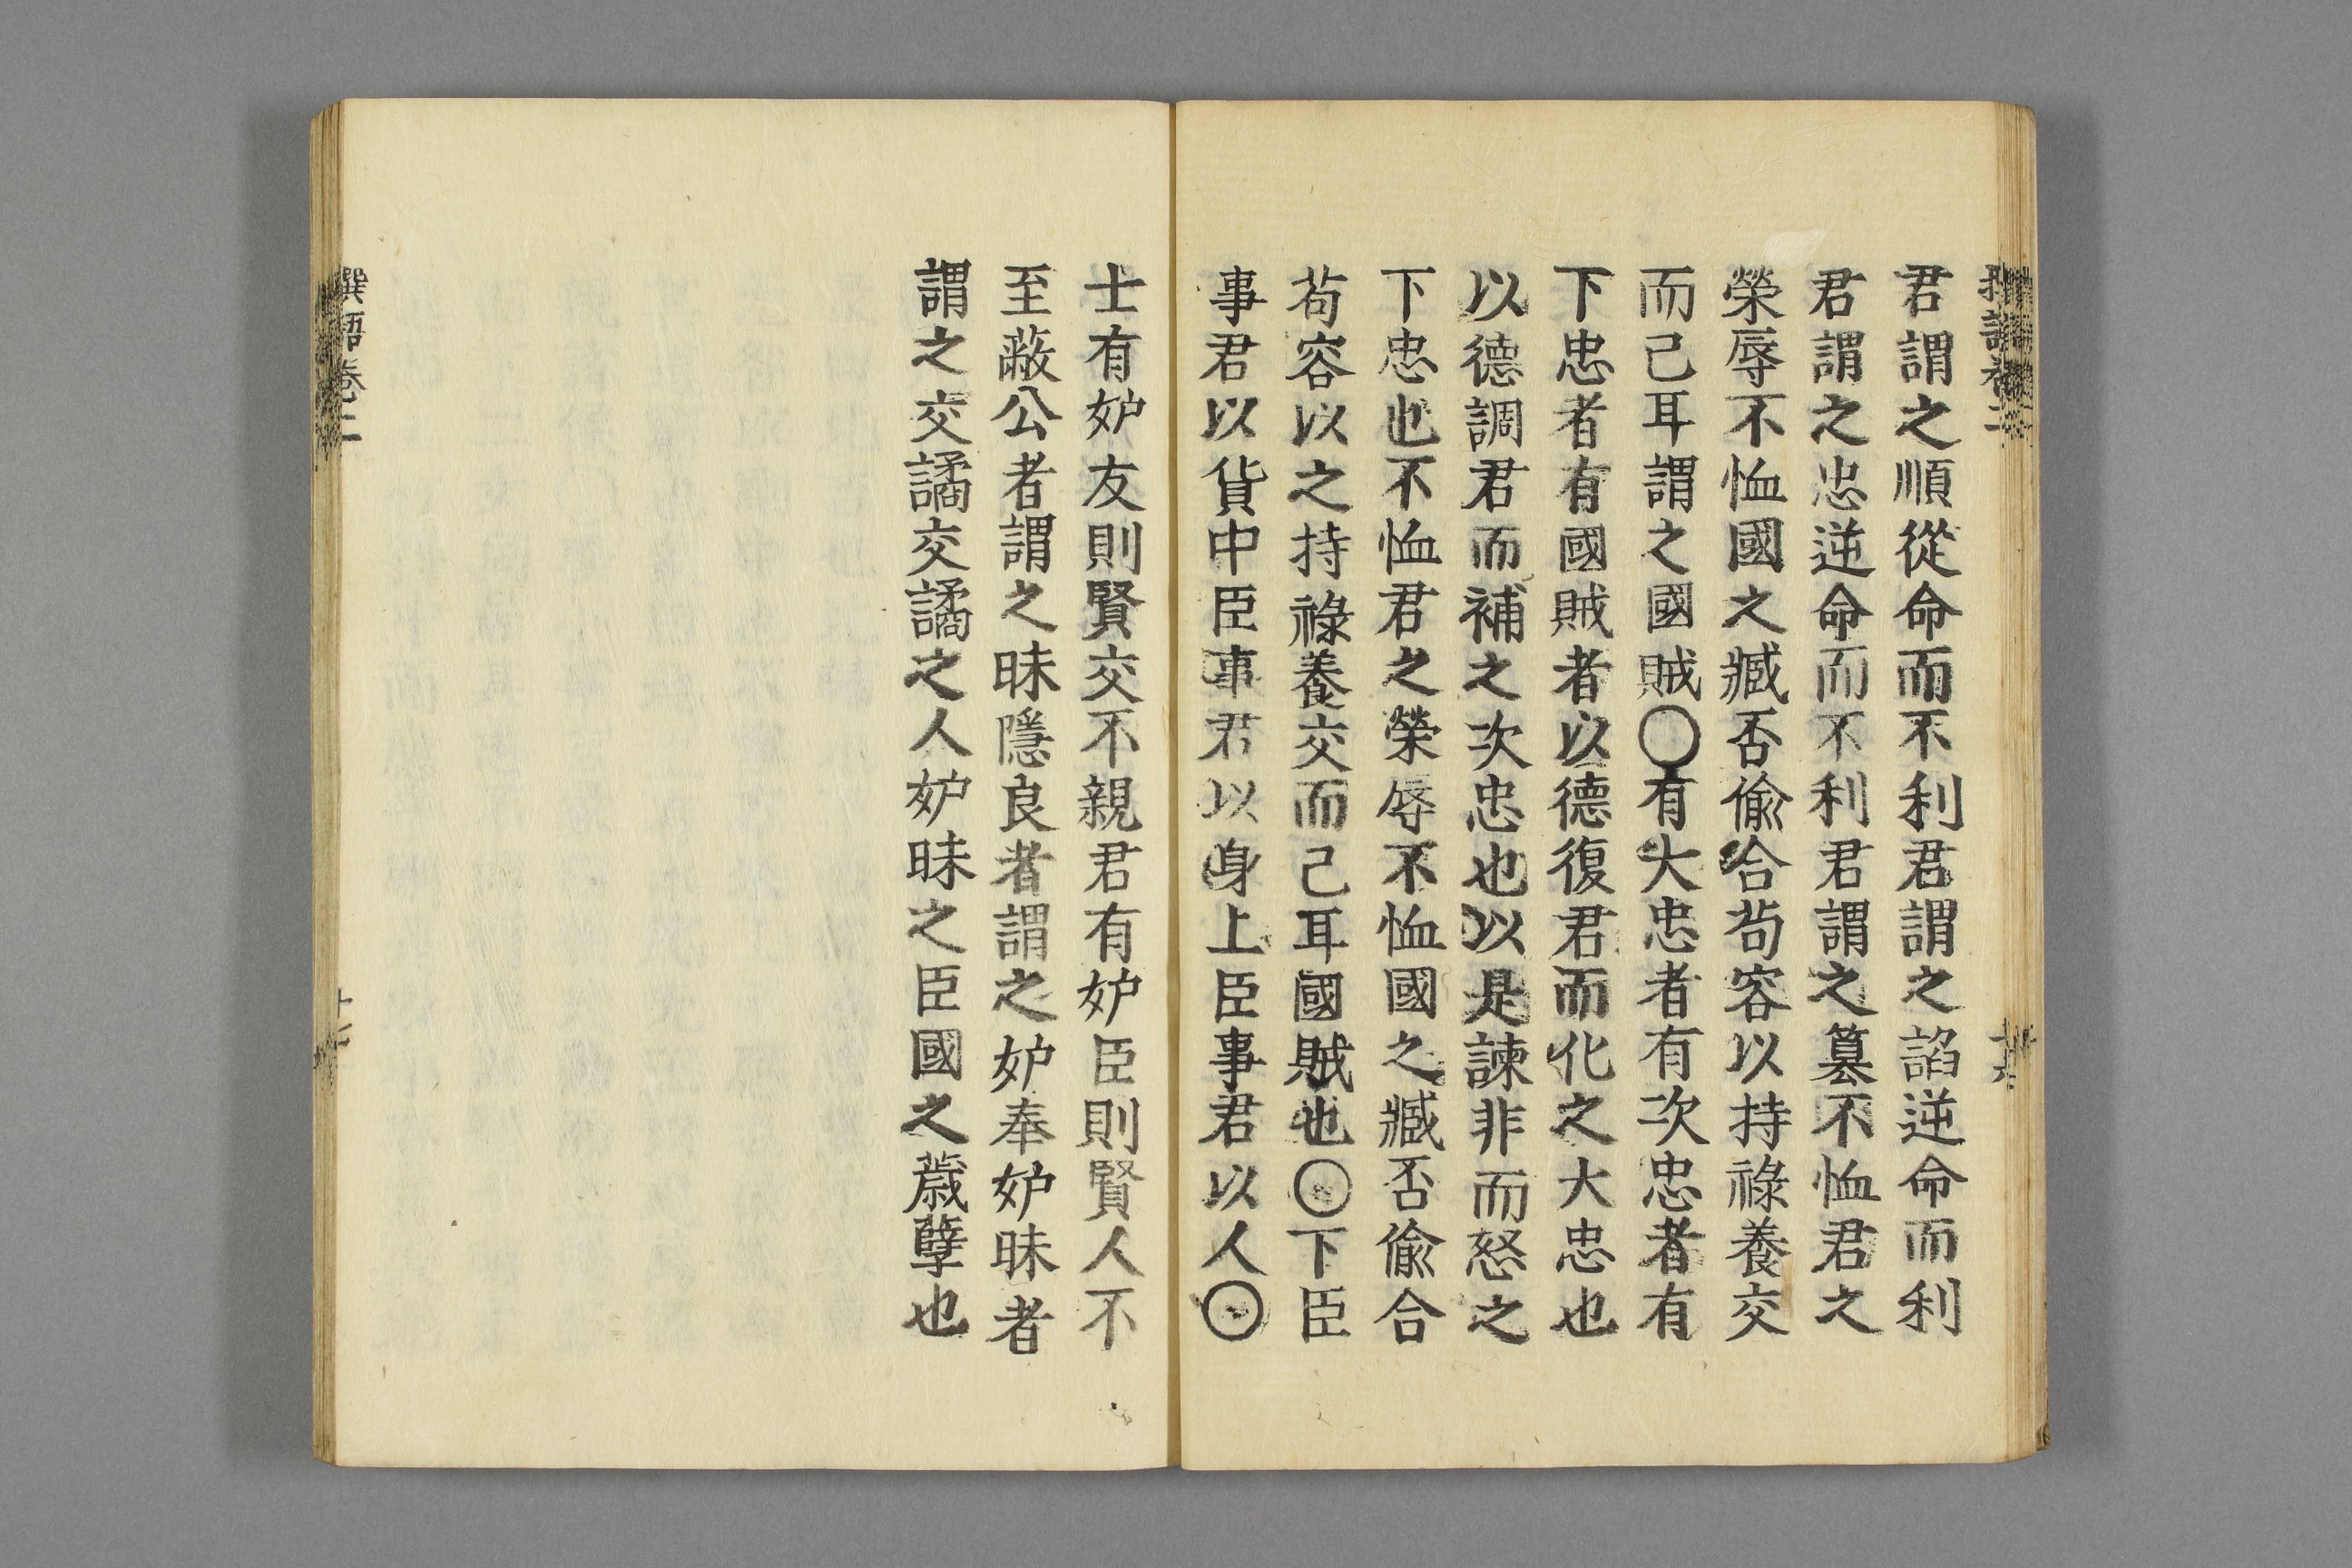 君謂之順從命而不利君謂之諂逆命而利
君謂之忠逆命而不利君謂之簒不恤君之
榮辱不恤國之臧否偸合茍容以持祿養交
而己耳謂之國賊〇有大忠者有次忠者有
下忠者有國賊者以德復君而化之大忠也
以德調君而補之次忠也以是諫非而怒之
下忠也不恤君之榮辱不恤國之臧否偸合
茍容以之持祿養交而己耳國賊也〇下臣
事君以貨中臣事君以身上臣事君以人〇
士有妒友則賢交不親君有妒臣則賢人不
至蔽公者謂之昧隱良者謂之妒奉妒昧者
謂之交譎交譎之人妒昧之臣國之薉孽也
撰語卷二
十七